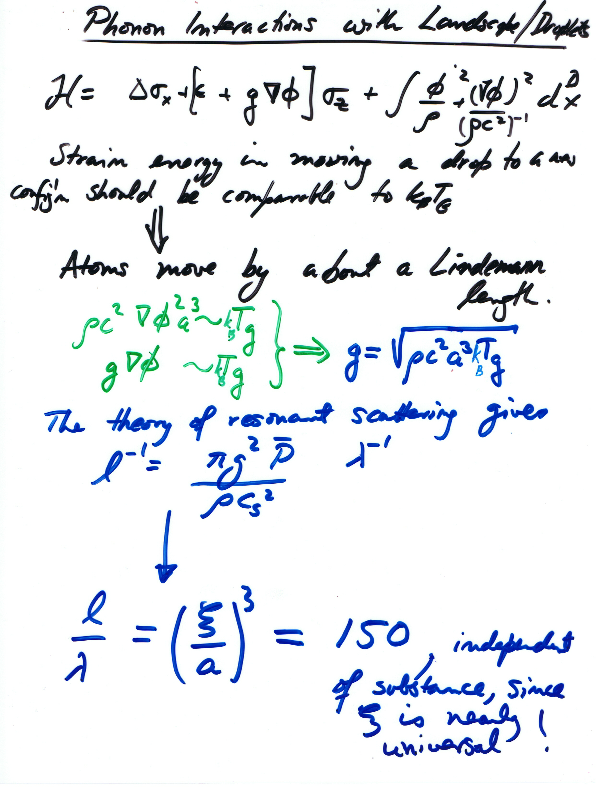 Phonon Interactions with Landscape/Droplets
H = Δσx + [ε + g∇φ] σz + ∫ φ̇²/ρ + (∇φ)²/(ρc²)⁻¹ dᴰx
Strain energy in moving a drop to a new
config'n should be comparable to kBTG
⇓
Atoms move by about a Lindemann
length.
ρc² ∇φ² a³ ~ kBTg
g∇φ ~ kBTg } ⇒ g = √(ρc²a³kBTg)
The theory of resonant scattering gives
l⁻¹ = πg² P̄ / ρcs² λ⁻¹
↓
l/λ = (ξ/a)³ = 150, independent
of substance, since
ξ is nearly
universal !